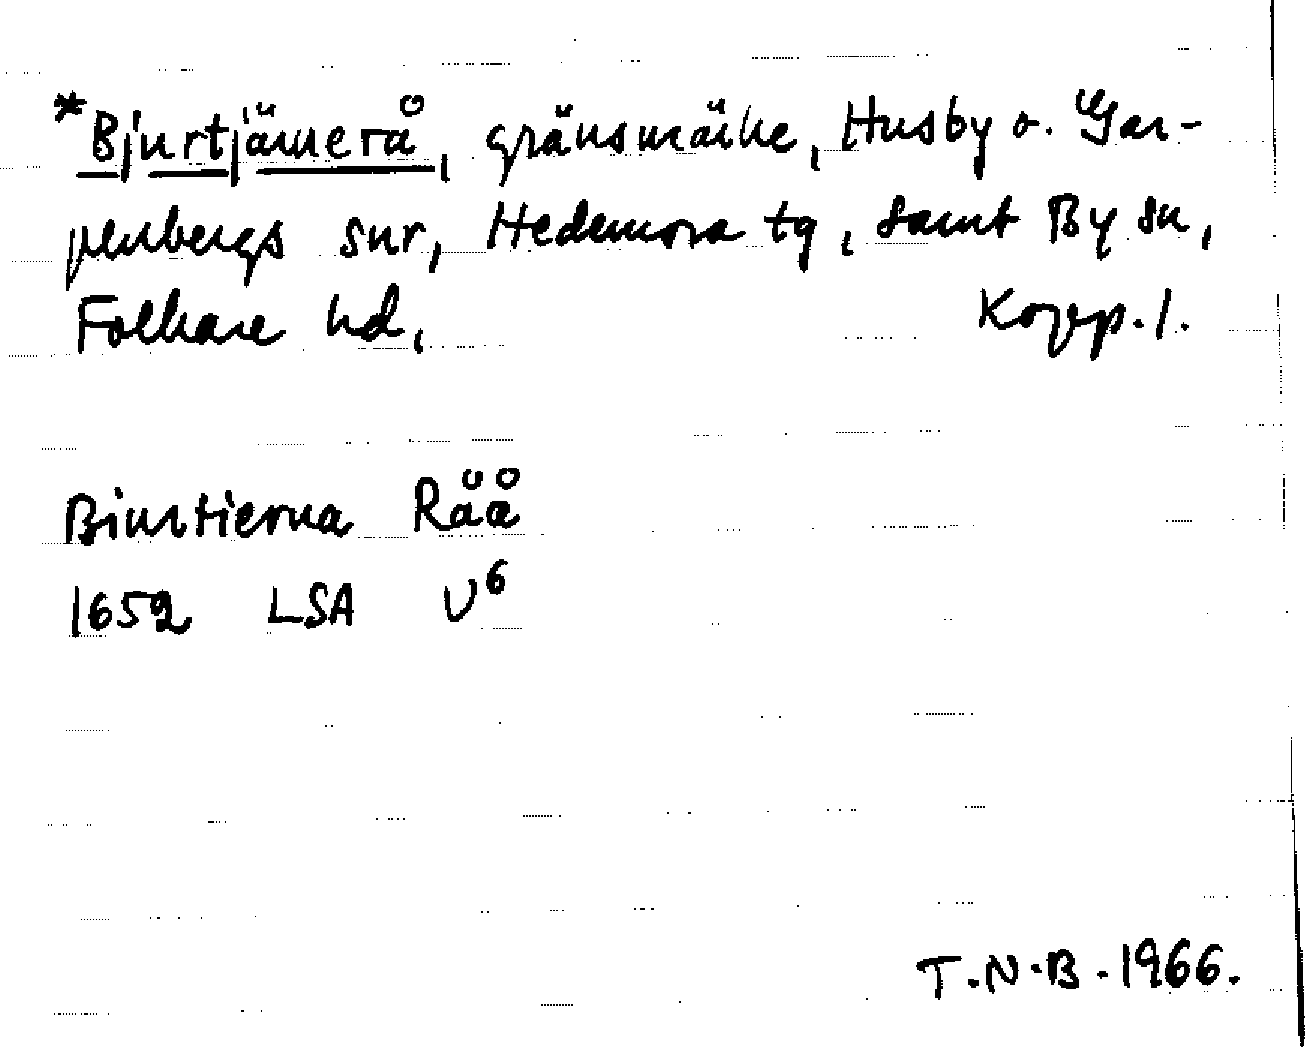 *Bjurtjärnerå, gränsmärke, Husby o. Gar-
penbergs snr, Hedemora tg, samt By sn,
Folkare hd, Kopp. l.
Biurtierna Råå
1652 LSA U⁶
T.N.B. 1966.